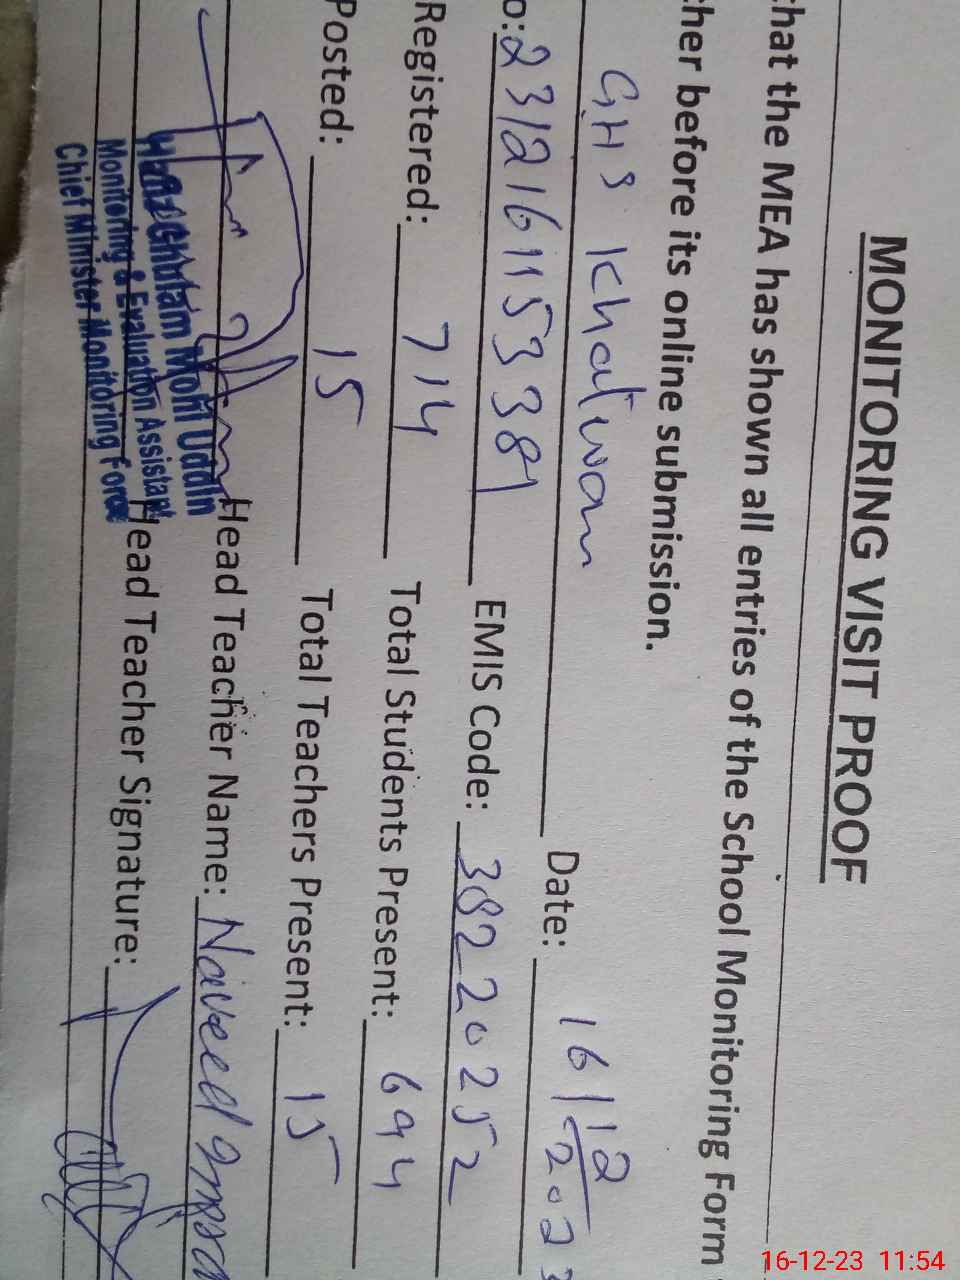 MONITORING VISIT PROOF
that the MEA has shown all entries of the School Monitoring Form
cher before its online submission.
GHS Khatwan Date: 16/12/2023
o: 231216115338 EMIS Code: 38220252
Registered: 714 Total Students Present: 694
Posted: 15 Total Teachers Present: 15
Head Teacher Name: Naveed
Head Teacher Signature:
Hafiz Ghulam Mohi Uddin
Monitoring & Evaluation Assistant
Chief Minister Monitoring Force
16-12-23 11:54